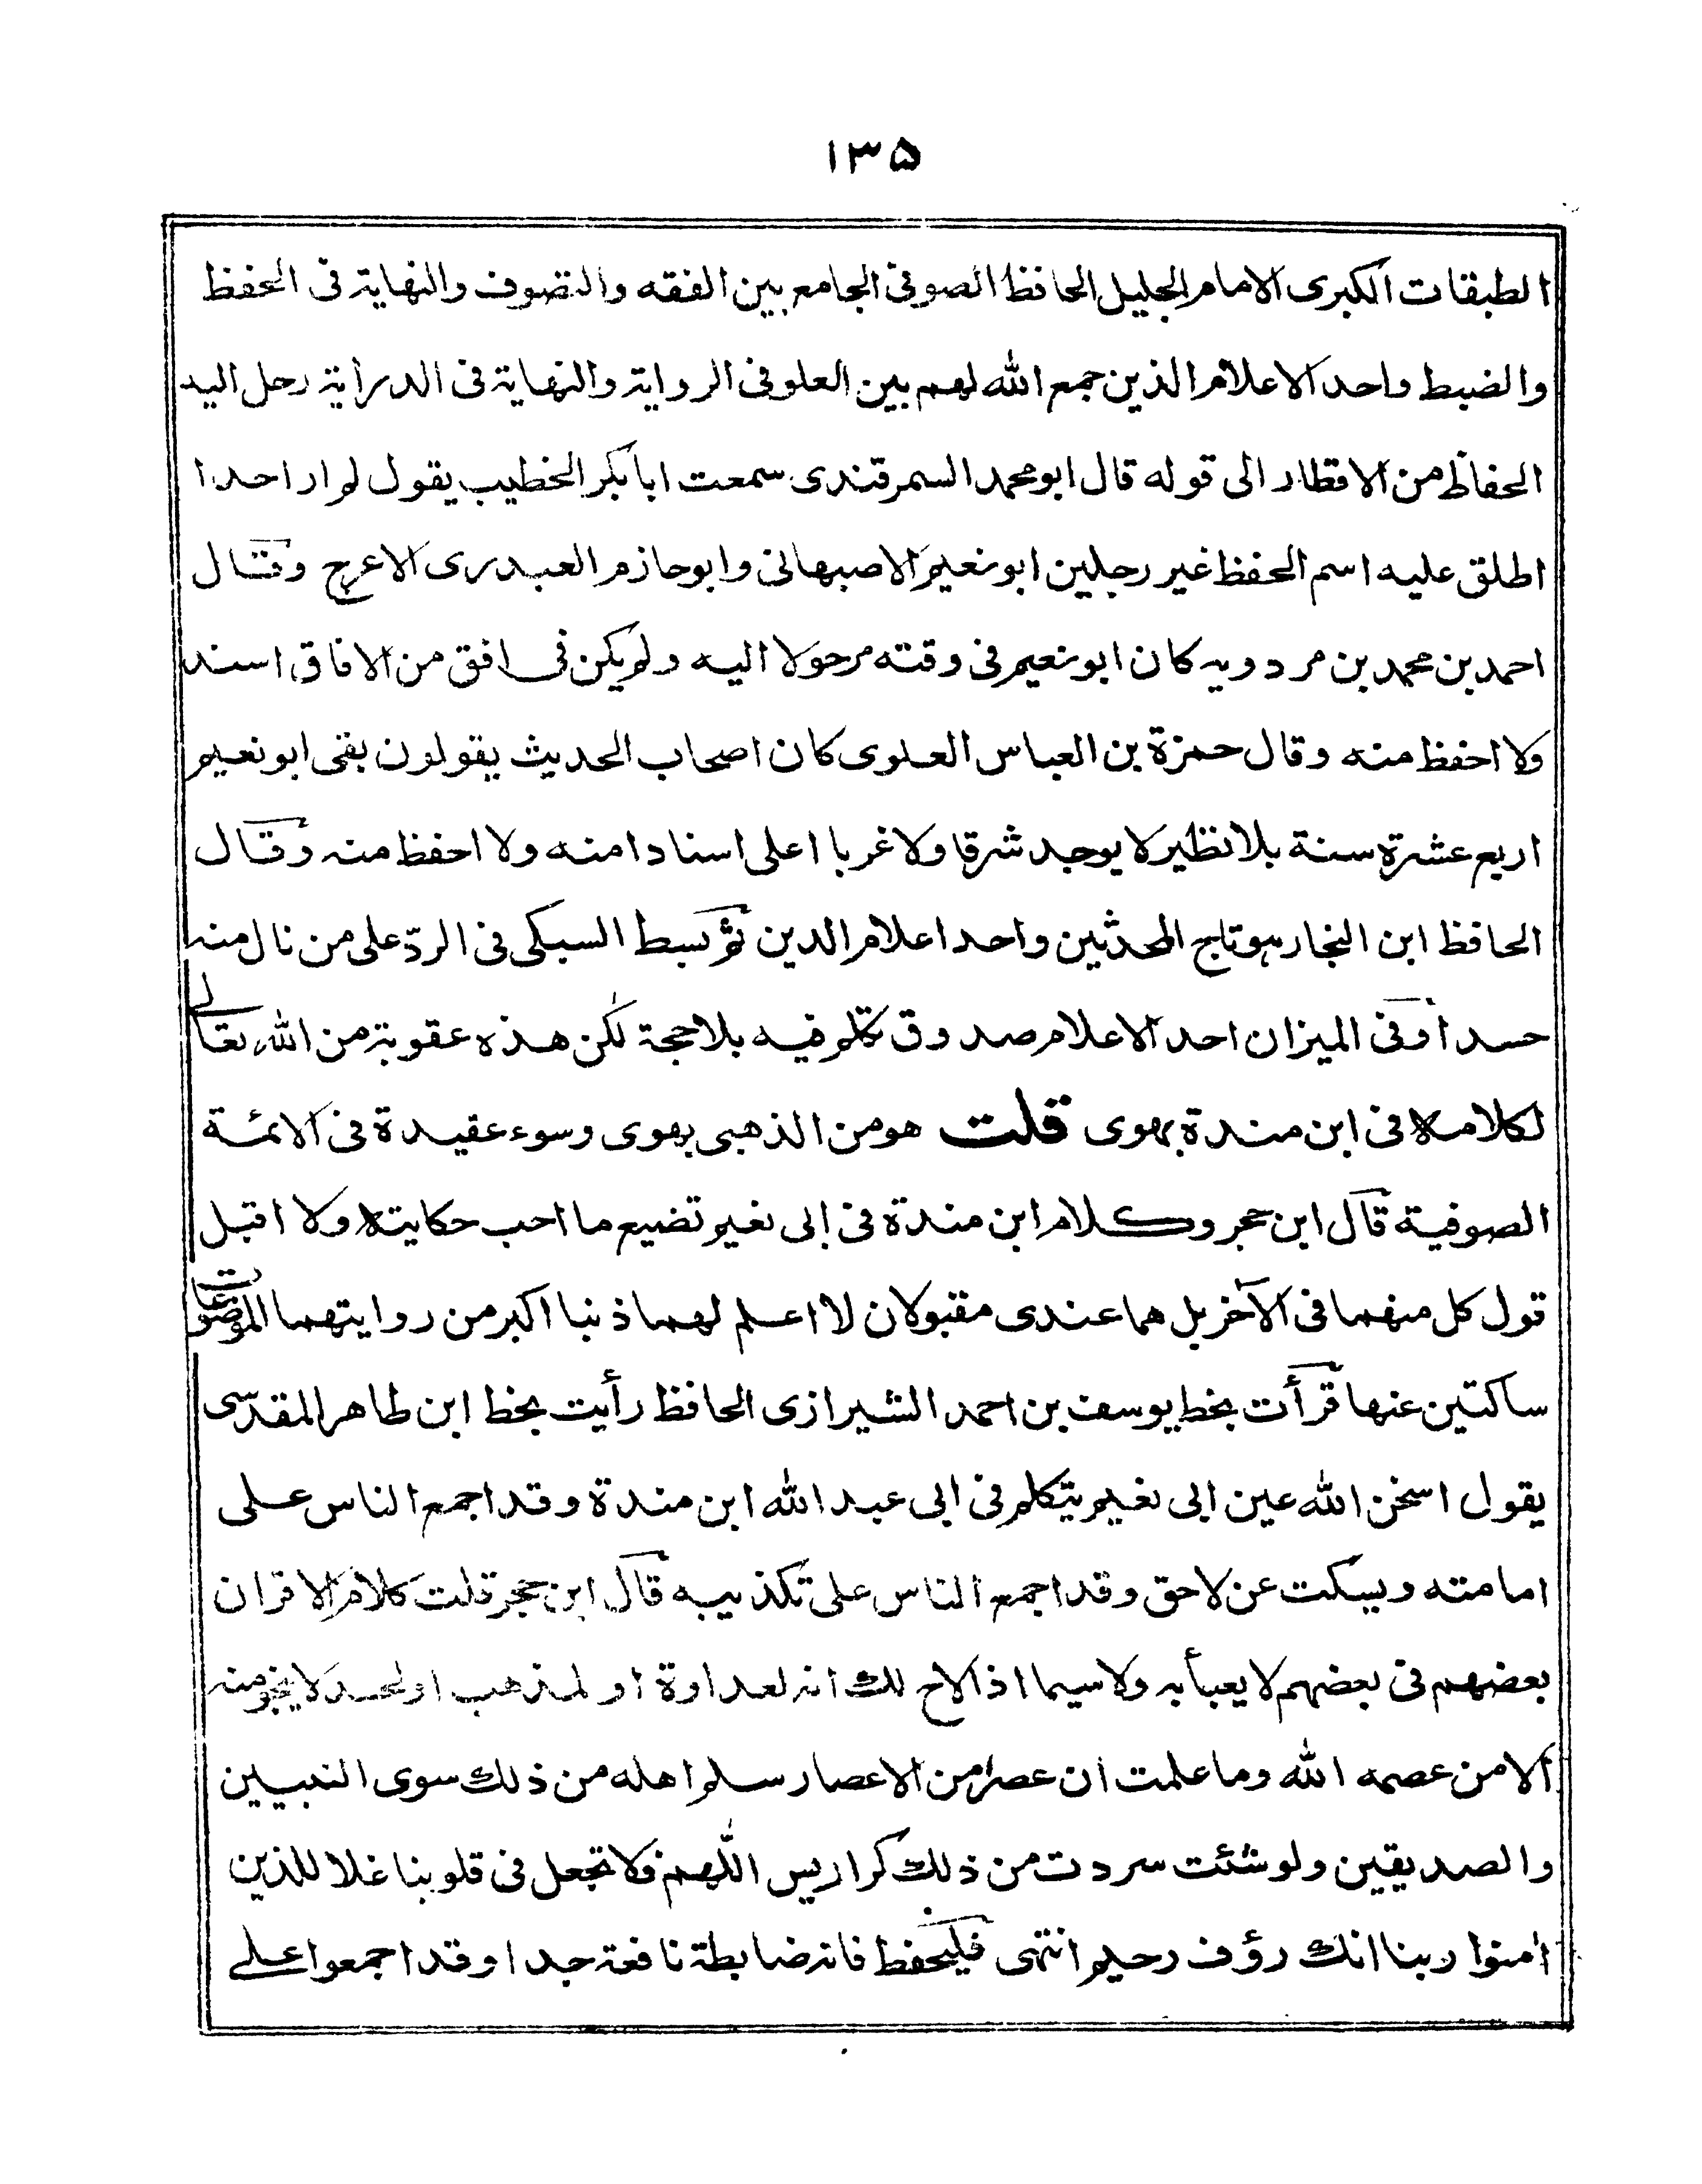 ١٣٥
الطبقات الكبرى الامام الجليل الحافظ الصوفى الجامع بين الفقه والتصوف والنهاية فى الحفظ
والضبط واحد الاعلام الذين جمع الله لهم بين العلو فى الرواية والنهاية فى الدراية رحل اليه
الحفاظ من الاقطار الى قوله قال ابو محمد السمرقندى سمعت ابا بكر الخطيب يقول لم ار احدا
اطلق عليه اسم الحفظ غير رجلين ابو نعيم الاصبهانى وابو حازم العبدرى الاعرج وقال
احمد بن محمد بن مردويه كان ابو نعيم فى وقته مرحولا اليه ولم يكن فى افق من الافاق اسند
ولا احفظ منه وقال حمزة بن العباس العلوى كان اصحاب الحديث يقولون بقى ابو نعيم
اربع عشرة سنة بلا نظير لا يوجد شرقا ولا غربا اعلى اسنادا منه ولا احفظ منه وقال
الحافظ ابن النجار هو تاج المحدثين واحد اعلام الدين ثم بسط السبكى فى الردّ على من نال منه
حسدا وفى الميزان احد الاعلام صدوق تكلم فيه بلا حجة لكن هذه عقوبة من الله تعالى
لكلامه فى ابن مندة بهوى قلت هو من الذهبى بهوى وسوء عقيدة فى الائمة
الصوفية قال ابن حجر وكلام ابن مندة فى ابى نعيم تضيع ما احب حكايته ولا اقبل
قول كل منهما فى الآخر بل هما عندى مقبولان لا اعلم لهما ذنبا اكبر من روايتهما الموضوعات
ساكتين عنها قرأت بخط يوسف بن احمد الشيرازى الحافظ رأيت بخط ابن طاهر المقدسى
يقول اسخن الله عين ابى نعيم يتكلم فى ابى عبد الله ابن مندة وقد اجمع الناس على
امامته ويسكت عن لاحق وقد اجمع الناس على تكذيبه قال ابن حجر قلت كلام الاقران
بعضهم فى بعضهم لا يعبأ به ولا سيما اذ الاح لك انه لعداوة او لمذهب او لحسد لا ينجو منه
الا من عصمه الله وما علمت ان عصرا من الاعصار سلم اهله من ذلك سوى النبيين
والصديقين ولو شئت سردت من ذلك كراريس اللهم فلا تجعل فى قلوبنا غلا للذين
امنوا ربنا انك رؤف رحيم انتهى فليحفظ فانه ضابطة نافعة جدا وقد اجمعوا على